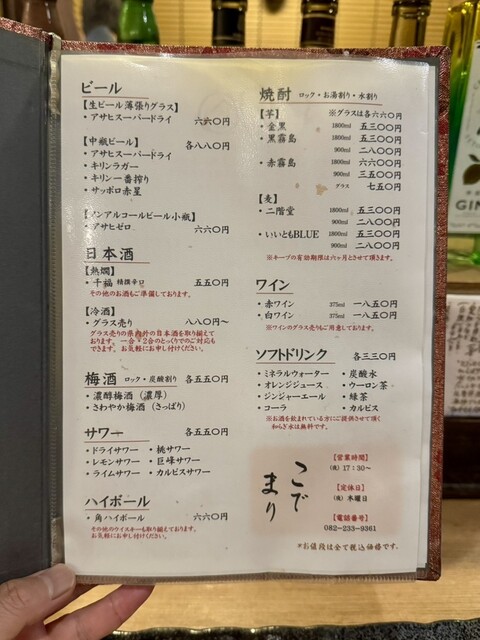 ビール
【生ビール薄張りグラス】
・アサヒスーパードライ 六六〇円
【中瓶ビール】 各八八〇円
・アサヒスーパードライ
・キリンラガー
・キリン一番搾り
・サッポロ赤星
【ノンアルコールビール小瓶】
・アサヒゼロ 六六〇円
日本酒
【熱燗】
・千福 精撰辛口 五五〇円
その他のお酒もご準備しております。
【冷酒】
・グラス売り 八八〇円〜
グラス売りの県内外の日本酒を取り揃えて
おります。一合・2合のとっくりでのご対応も
できます。お気軽にお申し付けください。
梅酒 ロック・炭酸割り 各五五〇円
・濃醇梅酒（濃厚）
・さわやか梅酒（さっぱり）
サワー 各五五〇円
・ドライサワー ・桃サワー
・レモンサワー ・巨峰サワー
・ライムサワー ・カルピスサワー
ハイボール
・角ハイボール 六六〇円
その他のウイスキーも取り揃えております。
お気軽にお申し付けください。
焼酎 ロック・お湯割り・水割り
【芋】 ※グラスは各六六〇円
・金黒 1800ml 五三〇〇円
・黒霧島 1800ml 五三〇〇円
900ml 二八〇〇円
・赤霧島 1800ml 六六〇〇円
900ml 三五〇〇円
グラス 七五〇円
【麦】
・二階堂 1800ml 五三〇〇円
900ml 二八〇〇円
・いいともBLUE 1800ml 五三〇〇円
900ml 二八〇〇円
※キープの有効期限は六ヶ月とさせて頂きます。
ワイン
・赤ワイン 375ml 一八五〇円
・白ワイン 375ml 一八五〇円
※ワインのグラス売りもご用意しております。
ソフトドリンク 各三三〇円
・ミネラルウォーター ・炭酸水
・オレンジジュース ・ウーロン茶
・ジンジャーエール ・緑茶
・コーラ ・カルピス
※お酒を飲まれている方にご提供させて頂く
和らぎ水は無料です。
こでまり
【営業時間】
(夜) 17：30〜
【定休日】
(夜) 木曜日
【電話番号】
082-233-9361
※お値段は全て税込価格です。
GIN